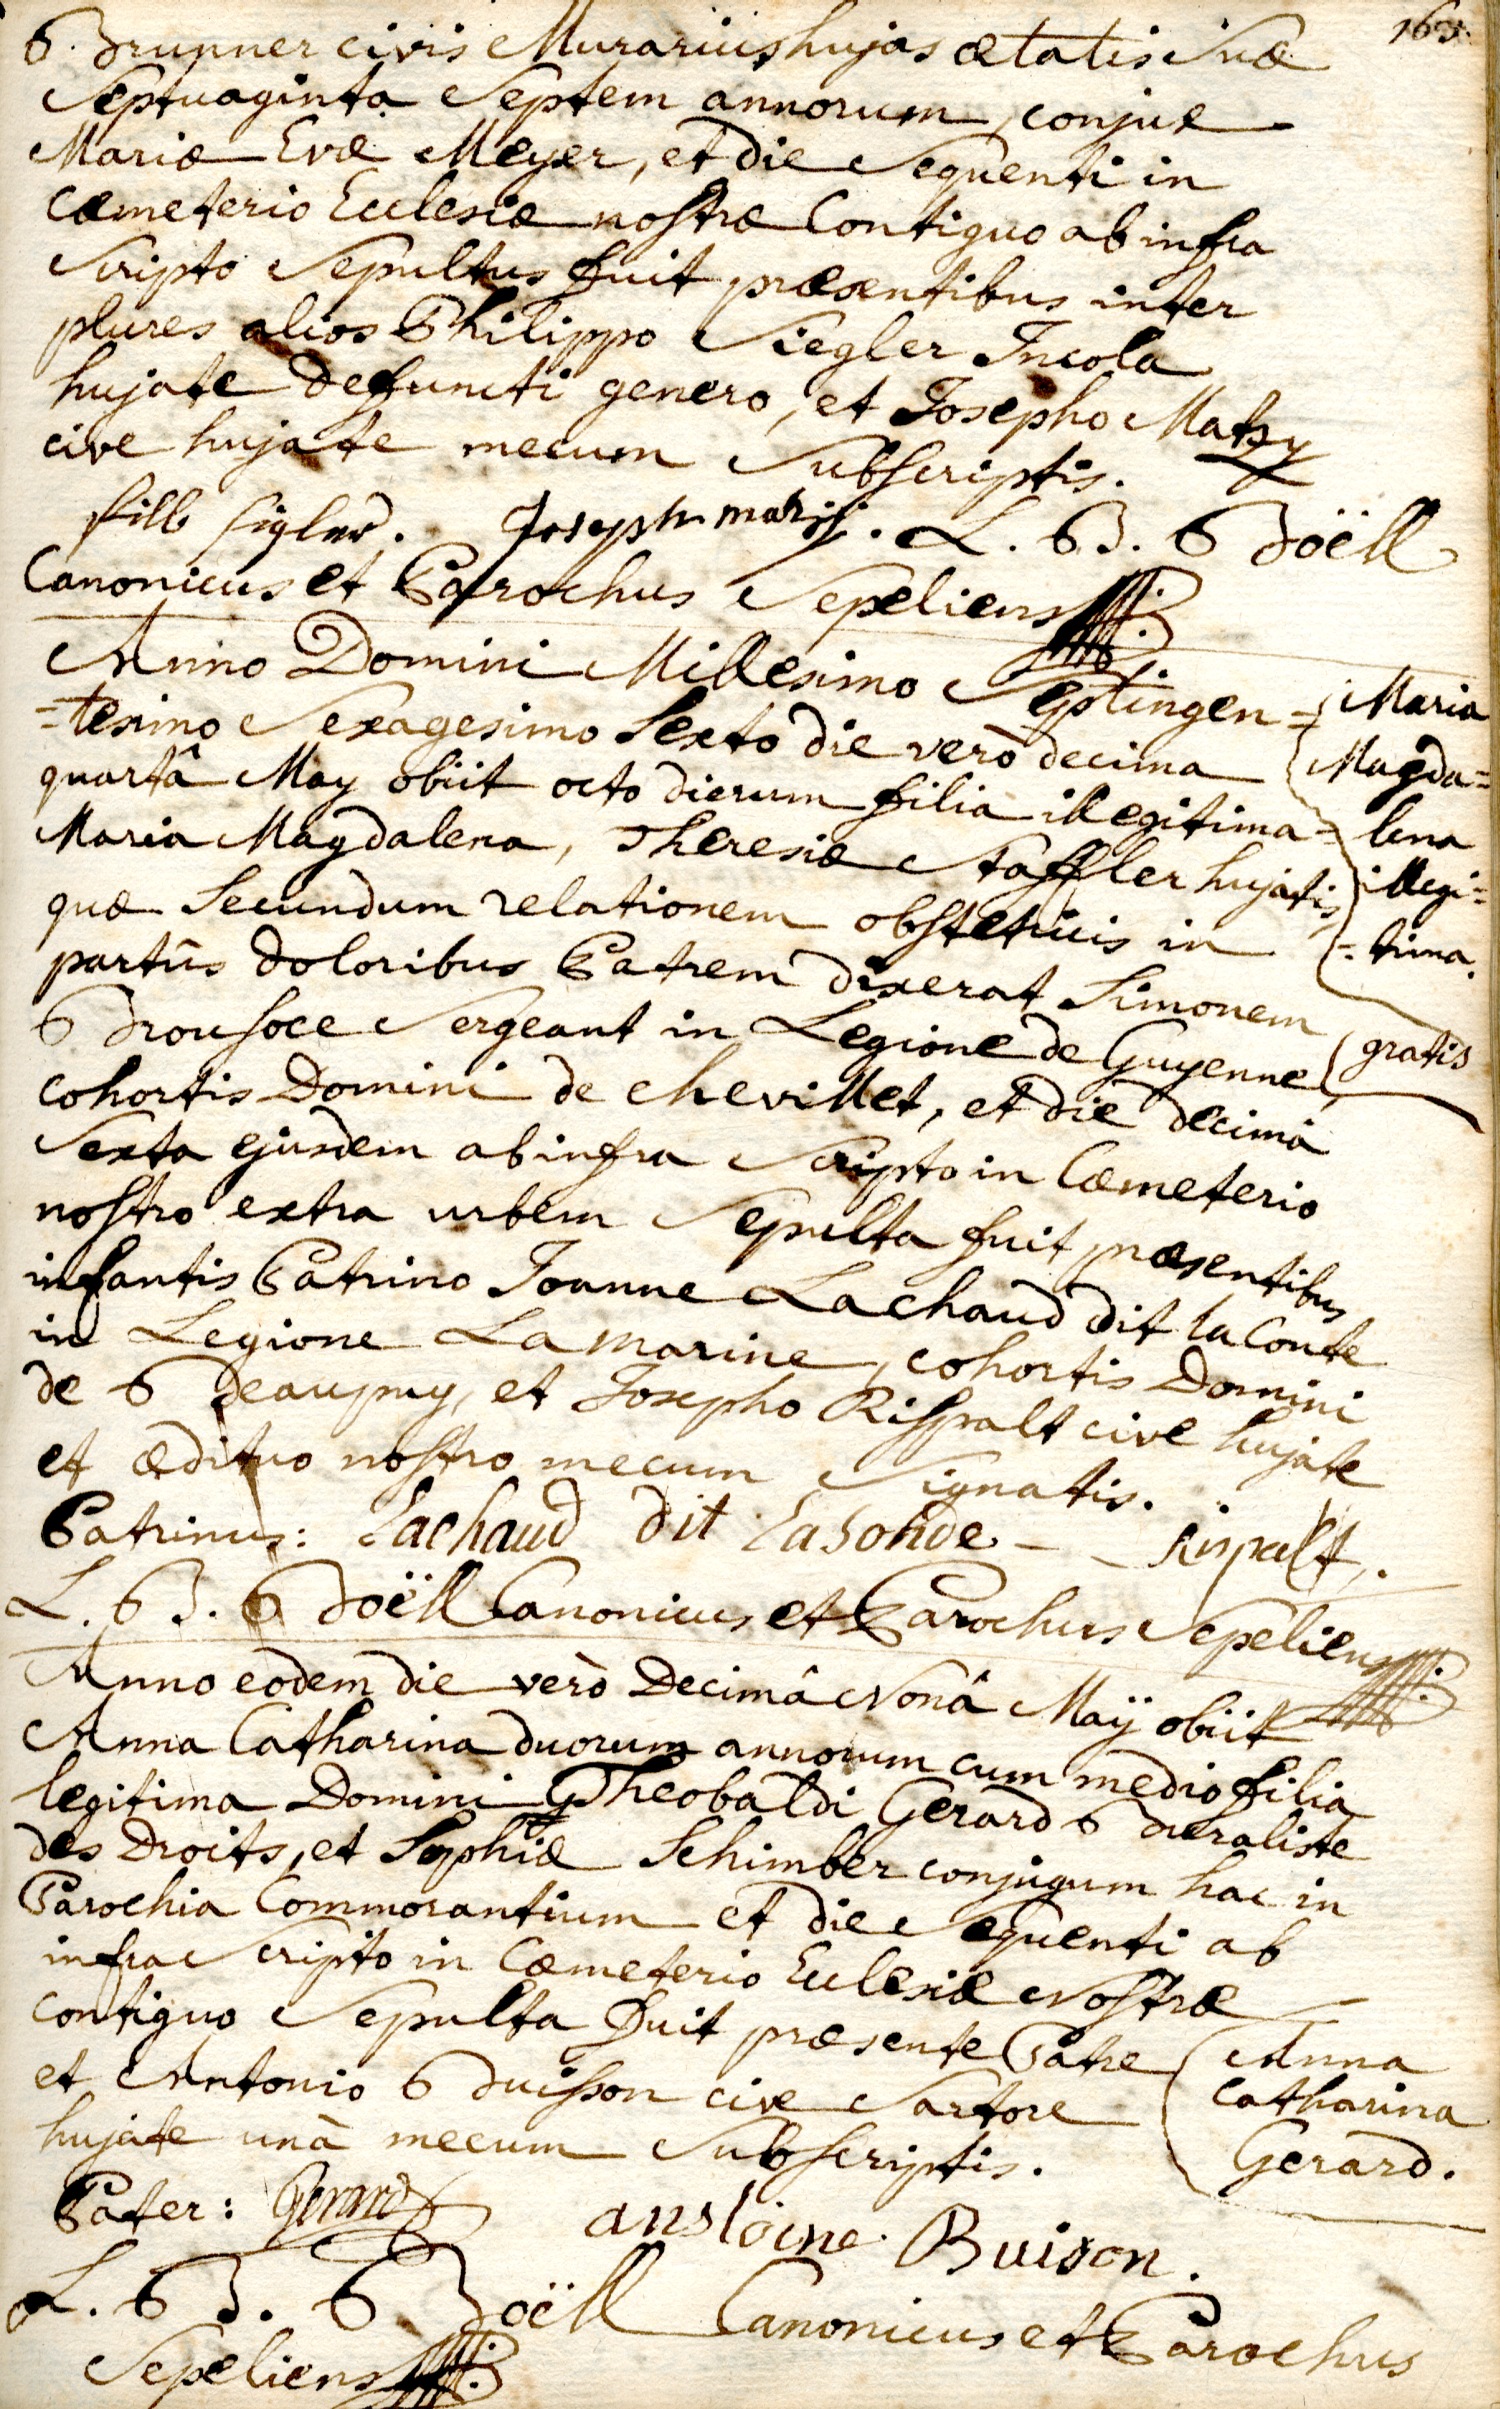 163.
Brunner civis Murarius hujas ætatis suæ
Septuaginta Septem annorum, conjux
Mariæ Evæ Meyer, et die Sequenti in
Cæmeterio Ecclesiæ nostræ Contiguo ab infra
Scripto Sepultus fuit præsentibus inter
plures alios Philippo Siegler Incola
hujate defuncti genero, et Josepho Matzy
cive hujate mecum Subscriptis.
Joseph L. B. Boëll
Canonicus et Parochus Sepeliens
Anno Domini Millesimo Septingen=
=tesimo Sexagesimo Sexto die verò decima
quartâ May obiit octo dierum filia illegitima
Maria Magdalena, Theresiæ Staffler hujatis,
quæ Secundum relationem obstetricis in
partûs doloribus Patrem dixerat Simonem
Brousoce Sergeant in Legione de Guyenne
cohortis Domini de chevillet, et die decimâ
Sexta ejusdem ab infra Scripto in Cæmeterio
nostro extra urbem Sepulta fuit præsentibus
infantis Patrino Joanne Lachaud dit la Conte
in Legione La marine, cohortis Domini
de Beaupuy, et Josepho Rispalt cive hujate
et ædituo nostro mecum Signatis.
Patrinus: Lachaud dit Rispalt.
L. B. Boëll Canonicus et Parochus Sepeliens
Maria
Magda=
lena
illegi=
=tima.
gratis
Anno eodem die verò Decimâ Nonâ Maÿ obiit
Anna Catharina duorum annorum cum medio filia
legitima Domini Theobaldi Gerard Buraliste
des Droits, et Sophiæ Schimber conjugum hac in
Parochia Commorantium et die Sequenti ab
infra Scripto in Cæmeterio Ecclesiæ Nostræ
contiguo Sepulta fuit præsente Patre
et Antonio Buisson cive Sartore
hujate unâ mecum Subscriptis.
Anna
Catharina
Gerard.
Pater: Gerard anstoine Buison.
L. B. Boëll Canonicus et Parochus
Sepeliens